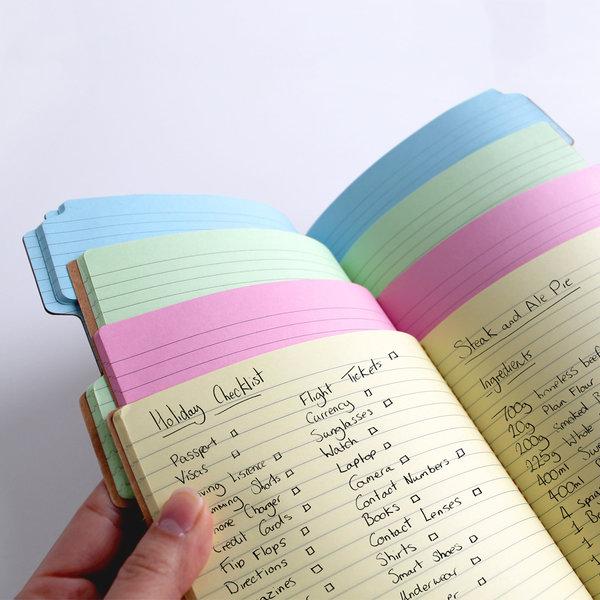 Holiday Checklist
Passport
Visas
Lisence
Shorts
Charger
Credit Cards
Flip Flops
Directions
Flight Tickets
Currency
Sunglasses
Watch
Laptop
Camera
Contact Numbers
Books
Contact Lenses
Shirts
Smart Shoes
Underwear
Steak and Ale Pie
Ingredients
700g boneless beef
20g Plain Flour
200g Smoked
225g Whole
400ml
400ml
4
1
1